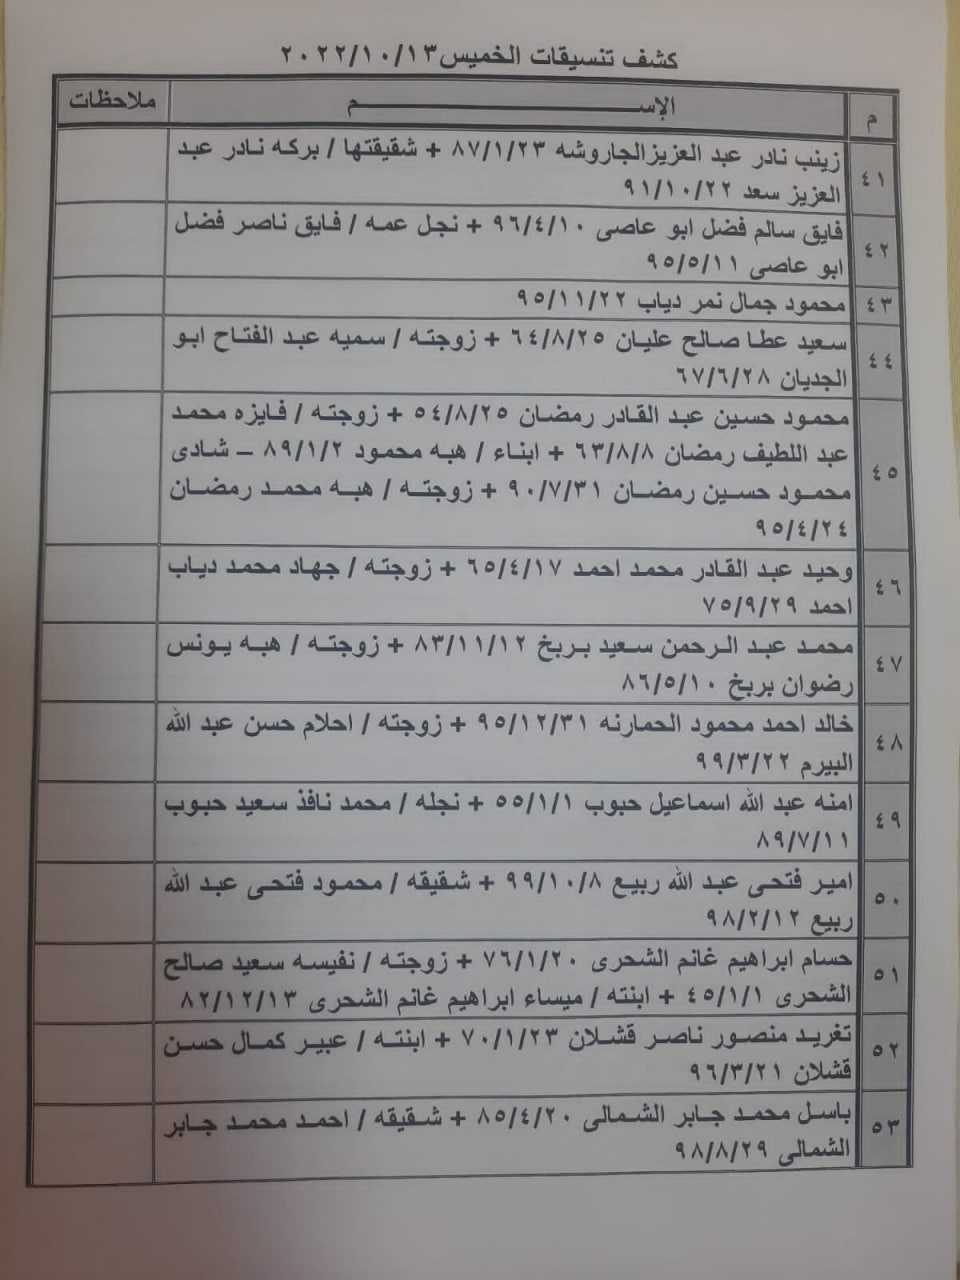 كشف تنسيقات الخميس ٢٠٢٢/١٠/١٣
م الإســـــــــــــــــم ملاحظات
٤١ زينب نادر عبد العزيزالجاروشه ٨٧/١/٢٣ + شقيقتها / بركه نادر عبد
العزيز سعد ٩١/١٠/٢٢
٤٢ فايق سالم فضل ابو عاصى ٩٦/٤/١٠ + نجل عمه / فايق ناصر فضل
ابو عاصى ٩٥/٥/١١
٤٣ محمود جمال نمر دياب ٩٥/١١/٢٢
٤٤ سعيد عطا صالح عليان ٦٤/٨/٢٥ + زوجته / سميه عبد الفتاح ابو
الجديان ٦٧/٦/٢٨
٤٥ محمود حسين عبد القادر رمضان ٥٤/٨/٢٥ + زوجته / فايزه محمد
عبد اللطيف رمضان ٦٣/٨/٨ + ابناء / هبه محمود ٨٩/١/٢ – شادى
محمود حسين رمضان ٩٠/٧/٣١ + زوجته / هبه محمد رمضان
٩٥/٤/٢٤
٤٦ وحيد عبد القادر محمد احمد ٦٥/٤/١٧ + زوجته / جهاد محمد دياب
احمد ٧٥/٩/٢٩
٤٧ محمد عبد الرحمن سعيد بربخ ٨٣/١١/١٢ + زوجته / هبه يونس
رضوان بربخ ٨٦/٥/١٠
٤٨ خالد احمد محمود الحمارنه ٩٥/١٢/٣١ + زوجته / احلام حسن عبد الله
البيرم ٩٩/٣/٢٢
٤٩ امنه عبد الله اسماعيل حبوب ٥٥/١/١ + نجله / محمد نافذ سعيد حبوب
٨٩/٧/١١
٥٠ امير فتحى عبد الله ربيع ٩٩/١٠/٨ + شقيقه / محمود فتحى عبد الله
ربيع ٩٨/٢/١٢
٥١ حسام ابراهيم غانم الشحرى ٧٦/١/٢٠ + زوجته / نفيسه سعيد صالح
الشحرى ٤٥/١/١ + ابنته / ميساء ابراهيم غانم الشحرى ٨٢/١٢/١٣
٥٢ تغريد منصور ناصر قشلان ٧٠/١/٢٣ + ابنته / عبير كمال حسن
قشلان ٩٦/٣/٢١
٥٣ باسل محمد جابر الشمالى ٨٥/٤/٢٠ + شقيقه / احمد محمد جابر
الشمالى ٩٨/٨/٢٩